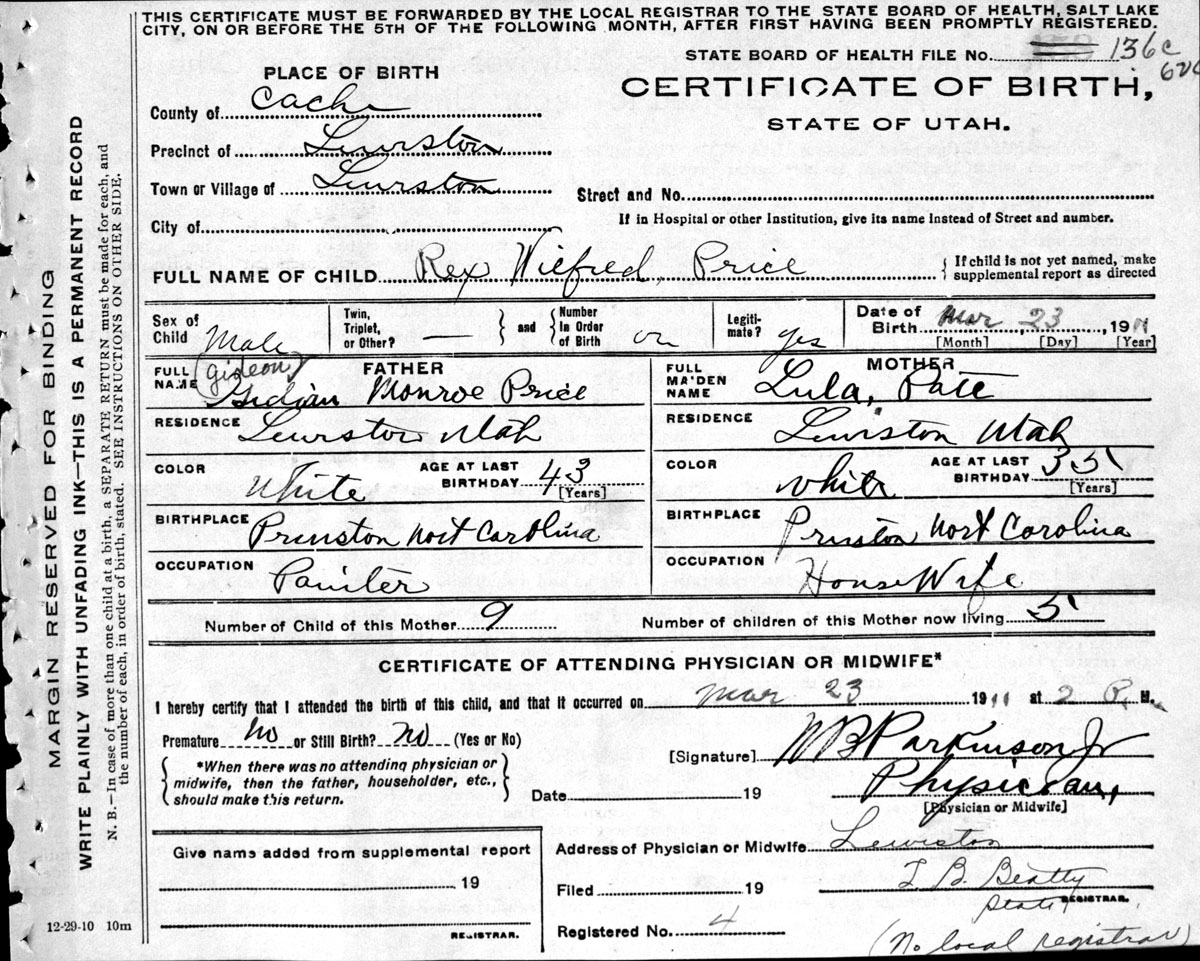 THIS CERTIFICATE MUST BE FORWARDED BY THE LOCAL REGISTRAR TO THE STATE BOARD OF HEALTH, SALT LAKE
CITY, ON OR BEFORE THE 5TH OF THE FOLLOWING MONTH, AFTER FIRST HAVING BEEN PROMPTLY REGISTERED.
STATE BOARD OF HEALTH FILE No. 136c
PLACE OF BIRTH
CERTIFICATE OF BIRTH,
STATE OF UTAH.
County of Cache
Precinct of Lewiston
Town or Village of Lewiston
Street and No.
City of
If in Hospital or other Institution, give its name instead of Street and number.
FULL NAME OF CHILD Rex Wilfred, Price { If child is not yet named, make supplemental report as directed
Sex of Child Male
Twin, Triplet, or Other? — } and { Number in Order of Birth
Legiti-mate? yes
Date of Birth Mar 23, 1911
[Month] [Day] [Year]
FATHER
FULL NAME (Gideon) Gidian Monroe Price
MOTHER
FULL MAIDEN NAME Lula, Pate
RESIDENCE Lewiston Utah
RESIDENCE Lewiston Utah
COLOR White AGE AT LAST BIRTHDAY 43 [Years]
COLOR White AGE AT LAST BIRTHDAY 35 [Years]
BIRTHPLACE Prinston Nort Carolina
BIRTHPLACE Prinston Nort Carolina
OCCUPATION Painter
OCCUPATION House Wife
Number of Child of this Mother 9 Number of children of this Mother now living 5
CERTIFICATE OF ATTENDING PHYSICIAN OR MIDWIFE*
I hereby certify that I attended the birth of this child, and that it occurred on Mar 23 1911 at 2 P. M.
Premature No or Still Birth? No (Yes or No)
[Signature] W B Parkinson Jr
{ *When there was no attending physician or
midwife, then the father, householder, etc.,
should make this return. }
Physician,
Date 19
[Physician or Midwife]
Give name added from supplemental report
19
REGISTRAR.
Address of Physician or Midwife Lewiston
Filed 19 T. B. Beatty
State REGISTRAR.
Registered No. 4
(No local registrar)
12-29-10 10m
MARGIN RESERVED FOR BINDING
WRITE PLAINLY WITH UNFADING INK—THIS IS A PERMANENT RECORD
N. B.—In case of more than one child at a birth, a SEPARATE RETURN must be made for each, and
the number of each, in order of birth, stated. SEE INSTRUCTIONS ON OTHER SIDE.